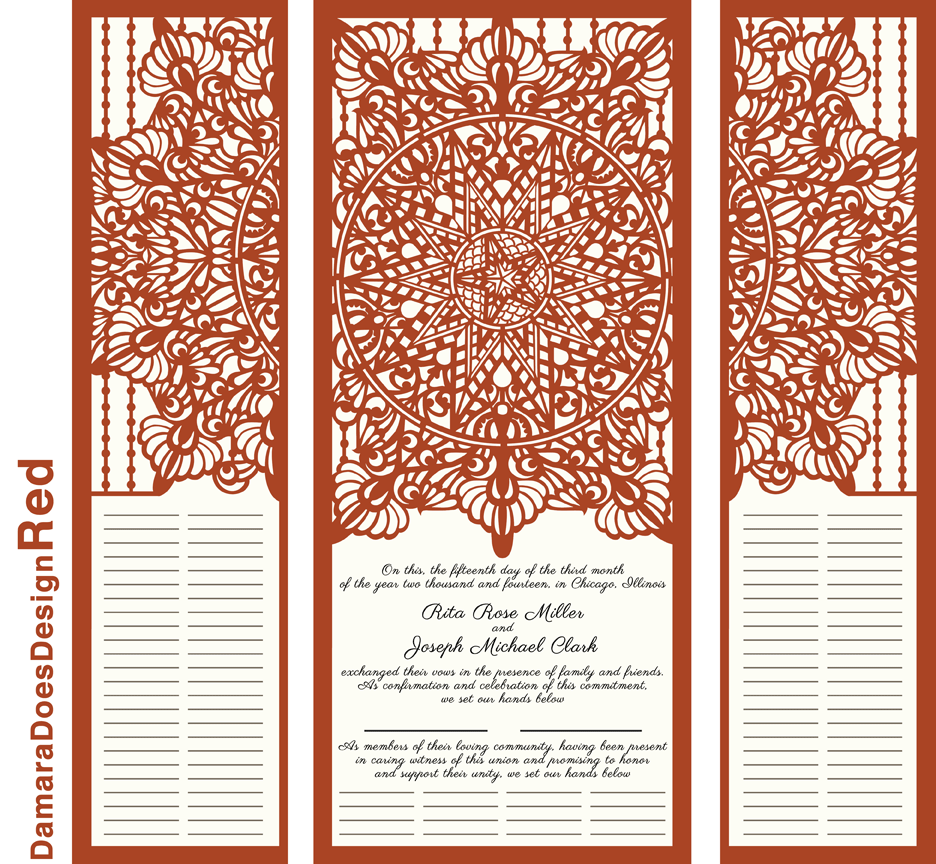 DamaraDoesDesignRed
On this, the fifteenth day of the third month
of the year two thousand and fourteen, in Chicago, Illinois
Rita Rose Miller
and
Joseph Michael Clark
exchanged their vows in the presence of family and friends.
As confirmation and celebration of this commitment,
we set our hands below
As members of their loving community, having been present
in caring witness of this union and promising to honor
and support their unity, we set our hands below